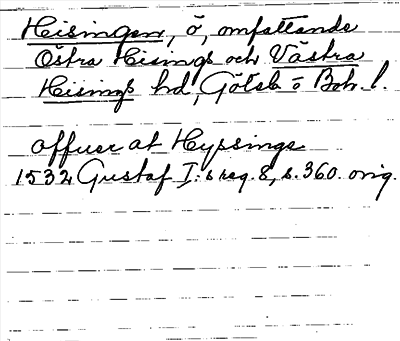 Hisingen, ö, omfattande
Östra Hisings och Västra
Hisings hd, Götebs o Boh. l.
offuer at Hyssinge
1532 Gustaf I:s reg. 8, s. 360. orig.